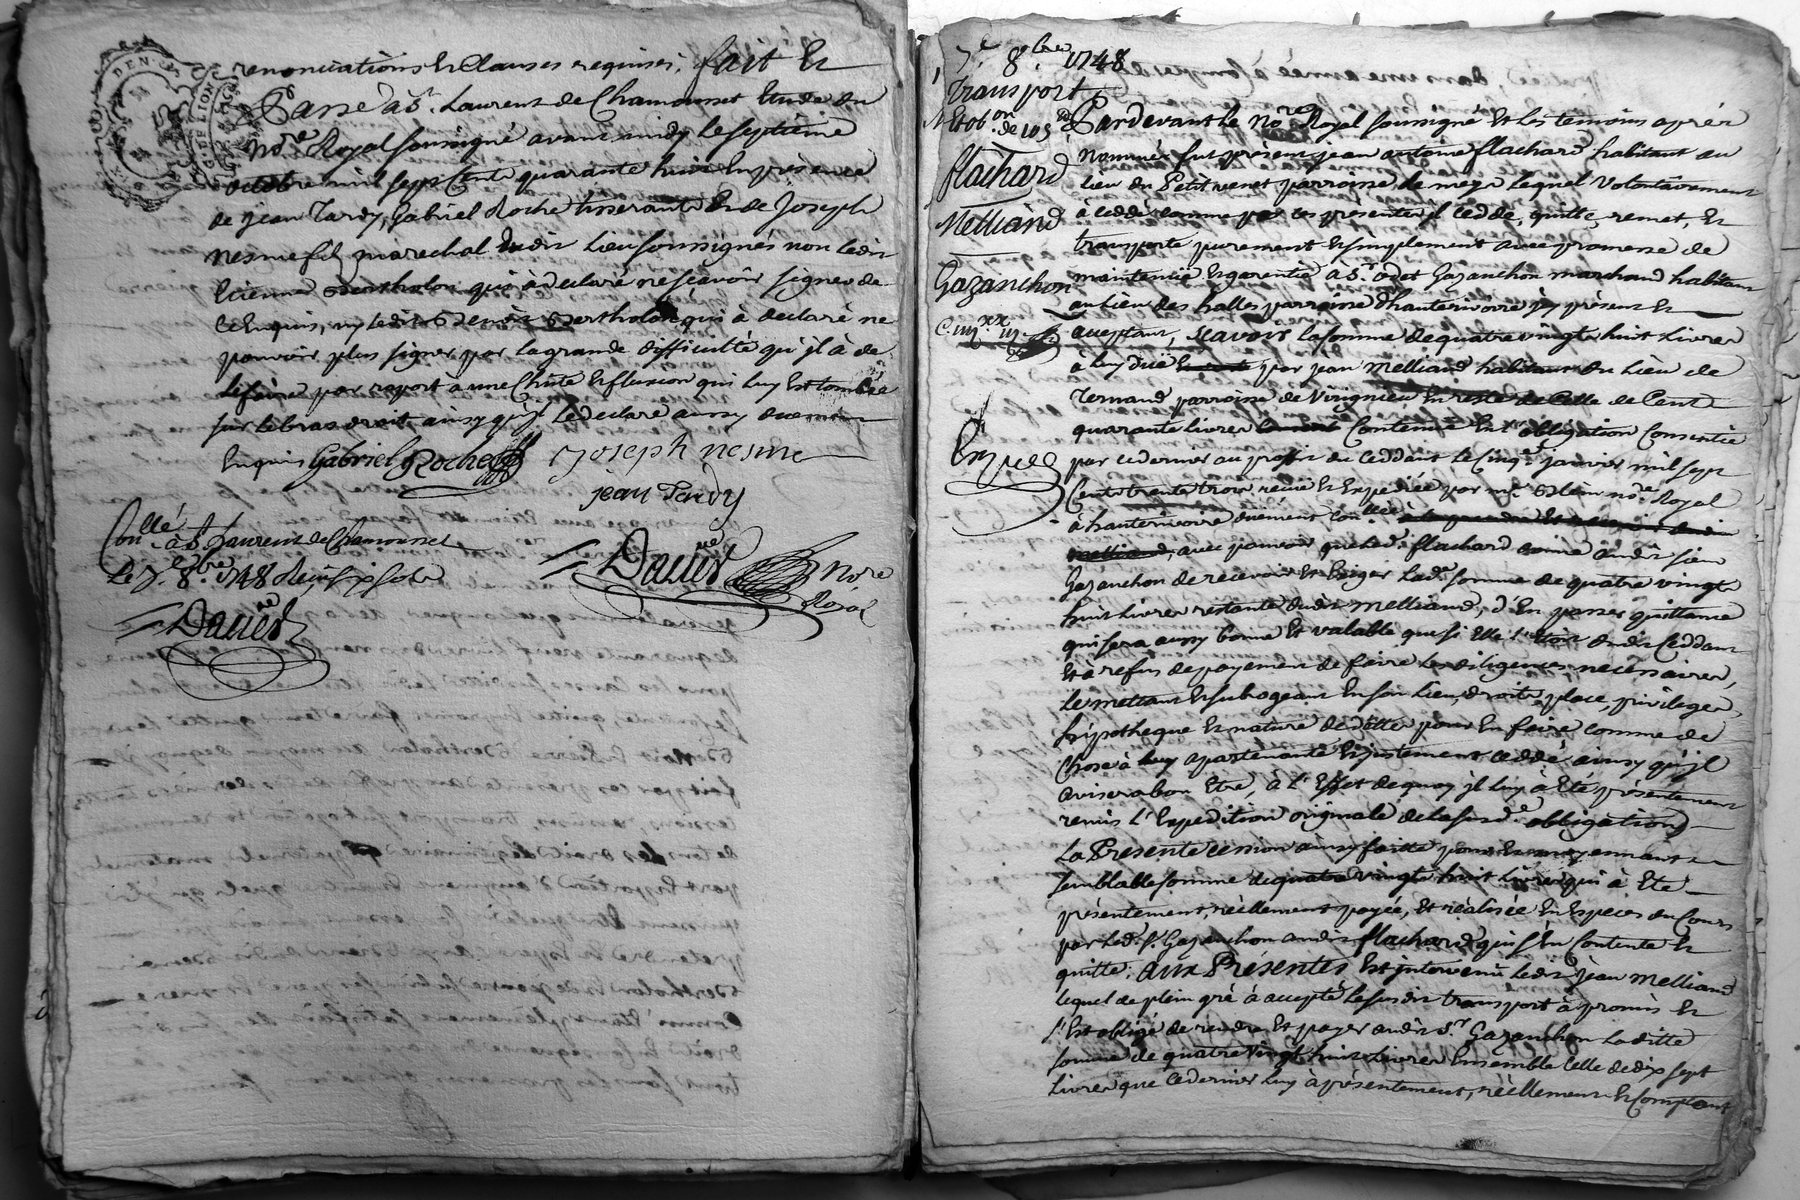 renonciations et Clauses requises, fait et
Passé a St. Laurent de Chamousset Etude du
Nore. Royal soussigné avant midy le septieme
octobre mil sept Cent quarante huit En présence
de jean Tardy, Gabriel Roche tisserants Et de Joseph
nesme fils marechal dudit Lieu soussignés non ledit
Etienne Bertholon qui à declaré ne scavoir signer de
Ce Enquis, ny ledit Benoit Bertholon qui à declaré ne
pouvoir plus signer par la grande difficulté qu'jl à de
le faire par raport à une Chûte Et fluxion qui luy Est tombée
sur le bras droit ainsy qu'jl le declare aussy duement
Enquis Gabriel Roche joseph nesme
jean Tardy
Daviet Nore
Royal
Conllé. à St Laurens de Chamousset
Le 7e. 8bre. 1748 Reçu six sols
Daviet
7e. 8bre. 1748
Transport
Et obon. de 105
flachard
Melliand
Gazanchon
C. iiijxx iij
Exped
Pardevant Le Nore. Royal soussigné Et les temoins après
Nommés fut présent jean antoine flachard habitant au
lieu du Petit parroisse de meys Lequel Volontairement
à Ceddé comme par ces présentes jl Cedde, quitte, remet, Et
transporte purement Et simplement avec promesse de
maintenüe Et garentie à Sr. odet Gazanchon marchand habitant
au Lieu des halles parroisse d'hauterivoire jcy présent Et
acceptant, scavoir la somme de quatre vingts huit Livres
à luy düe par jean Melliand habitant du Lieu de
Ternand parroisse de Virignieu En reste de Celle de Cent
quarante Livres Contenüe En l'obligation Consentie
par ce dernier au profit du Ceddant le Cinqe. janvier mil sept
Cents trente trois reçüe Et Expediée par me. Blein nore. Royal
à hauterivoire düement Conllée
Melliand, avec pouvoir que led. flachard donne audit sieur
Gazanchon de recevoir Et Exiger lade. somme de quatre vingts
huit Livres restante dudit Melliand, d'En passer quittance
qui sera aussy bonne Et valable que si Elle l'Etoit dudit Ceddant
Et à refus de payement de faire les diligences necessaires,
le mettant Et subrogeant En son Lieu, droits, place, privileges,
hypotheque Et nature de dette pour En faire comme de
Chose à luy apartenante Et justement ceddé ainsy qu'jl
avisera bon Etre, à l'Effet de quoy jl luy à Eté présentement
remis L'Expedition originale de la susde. obligation
La Présente cession ainsy faitte pour Et moyennant
semblable somme de quatre vingts huit Livres qui à Eté
présentement, réellement payée, Et réalisée En Especes du Cours
par led. Sr. Gazanchon audit flachard qui s'En Contente Et
quitte. aux Présentes Est jntervenü ledit jean Melliand
lequel de plein gré à accepté le susdit transport à promis Et
s'Est obligé de rendre Et payer audit Sr. Gazanchon Laditte
somme de quatre Vingt huit Livres Ensemble Celle de dix sept
Livres que ce dernier luy à présentement, réellement Et Comptant